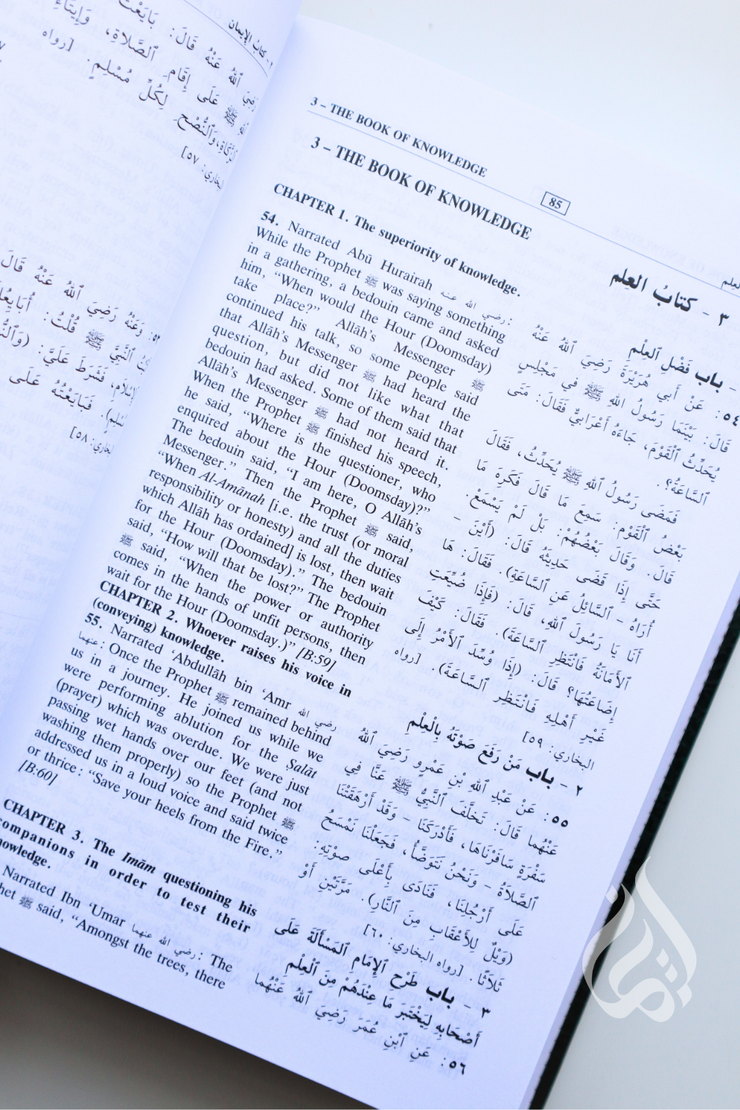 ٢ - كتاب الإيمان
رَضِيَ اللهُ عَنْهُ قَالَ: بَايَعْتُ
ﷺ عَلَى إِقَامِ الصَّلَاةِ، وَإِيتَاءِ
الزَّكَاةِ، وَالنُّصْحِ لِكُلِّ مُسْلِمٍ. [رواه
البخاري: ٥٧]
وَعَنْهُ رَضِيَ اللهُ عَنْهُ قَالَ
النَّبِيَّ ﷺ قُلْتُ: أُبَايِعُكَ
فَشَرَطَ عَلَيَّ: (وَالنُّصْحِ
فَبَايَعْتُهُ عَلَى
البخاري: ٥٨]
3 – THE BOOK OF KNOWLEDGE
85
3 – THE BOOK OF KNOWLEDGE
CHAPTER 1. The superiority of knowledge.
54. Narrated Abū Hurairah رضي الله عنه :
While the Prophet ﷺ was saying something
in a gathering, a bedouin came and asked
him, "When would the Hour (Doomsday)
take place?" Allāh's Messenger ﷺ
continued his talk, so some people said
that Allāh's Messenger ﷺ had heard the
question, but did not like what that
bedouin had asked. Some of them said that
Allāh's Messenger ﷺ had not heard it.
When the Prophet ﷺ finished his speech,
he said, "Where is the questioner, who
enquired about the Hour (Doomsday)?"
The bedouin said, "I am here, O Allāh's
Messenger." Then the Prophet ﷺ said,
"When Al-Amānah [i.e. the trust (or moral
responsibility or honesty) and all the duties
which Allāh has ordained] is lost, then wait
for the Hour (Doomsday)." The bedouin
said, "How will that be lost?" The Prophet
ﷺ said, "When the power or authority
comes in the hands of unfit persons, then
wait for the Hour (Doomsday.)" [B:59]
CHAPTER 2. Whoever raises his voice in
(conveying) knowledge.
55. Narrated 'Abdullāh bin 'Amr رضي الله
عنهما : Once the Prophet ﷺ remained behind
us in a journey. He joined us while we
were performing ablution for the Ṣalāt
(prayer) which was overdue. We were just
passing wet hands over our feet (and not
washing them properly) so the Prophet ﷺ
addressed us in a loud voice and said twice
or thrice: "Save your heels from the Fire."
[B:60]
CHAPTER 3. The Imām questioning his
companions in order to test their
knowledge.
Narrated Ibn 'Umar رضي الله عنهما : The
ﷺ said, "Amongst the trees, there
٣ - كتابُ العِلم
باب فَضْل العِلْم
٥٤ : عَنْ أَبِي هُرَيْرَةَ رَضِيَ اللهُ عَنْهُ
قَالَ: بَيْنَمَا رَسُولُ اللهِ ﷺ فِي مَجْلِسٍ
يُحَدِّثُ الْقَوْمَ، جَاءَهُ أَعْرَابِيٌّ فَقَالَ: مَتَى
السَّاعَةُ؟.
فَمَضَى رَسُولُ اللهِ ﷺ يُحَدِّثُ، فَقَالَ
بَعْضُ الْقَوْمِ: سَمِعَ مَا قَالَ فَكَرِهَ مَا
قَالَ. وَقَالَ بَعْضُهُمْ: بَلْ لَمْ يَسْمَعْ.
حَتَّى إِذَا قَضَى حَدِيثَهُ قَالَ: (أَيْنَ -
أُرَاهُ - السَّائِلُ عَنِ السَّاعَةِ). فَقَالَ: هَا
أَنَا يَا رَسُولَ اللهِ، قَالَ: (فَإِذَا ضُيِّعَتِ
الأَمَانَةُ فَانْتَظِرِ السَّاعَةَ). فَقَالَ: كَيْفَ
إِضَاعَتُهَا؟ قَالَ: (إِذَا وُسِّدَ الأَمْرُ إِلَى
غَيْرِ أَهْلِهِ فَانْتَظِرِ السَّاعَةَ). [رواه
البخاري: ٥٩]
٢ - باب مَنْ رَفَعَ صَوْتَهُ بِالْعِلْمِ
٥٥ : عَنْ عَبْدِ اللهِ بْنِ عَمْرٍو رَضِيَ اللهُ
عَنْهُمَا قَالَ: تَخَلَّفَ النَّبِيُّ ﷺ عَنَّا فِي
سَفْرَةٍ سَافَرْنَاهَا، فَأَدْرَكَنَا - وَقَدْ أَرْهَقَتْنَا
الصَّلَاةُ - وَنَحْنُ نَتَوَضَّأُ، فَجَعَلْنَا نَمْسَحُ
عَلَى أَرْجُلِنَا، فَنَادَى بِأَعْلَى صَوْتِهِ:
(وَيْلٌ لِلأَعْقَابِ مِنَ النَّارِ). مَرَّتَيْنِ أَوْ
ثَلَاثًا. [رواه البخاري: ٦٠]
٣ - باب طَرْحِ الإِمَامِ المَسْأَلَةَ عَلَى
أَصْحَابِهِ لِيَخْتَبِرَ مَا عِنْدَهُمْ مِنَ العِلْمِ
٥٦ : عَنِ ابْنِ عُمَرَ رَضِيَ اللهُ عَنْهُمَا